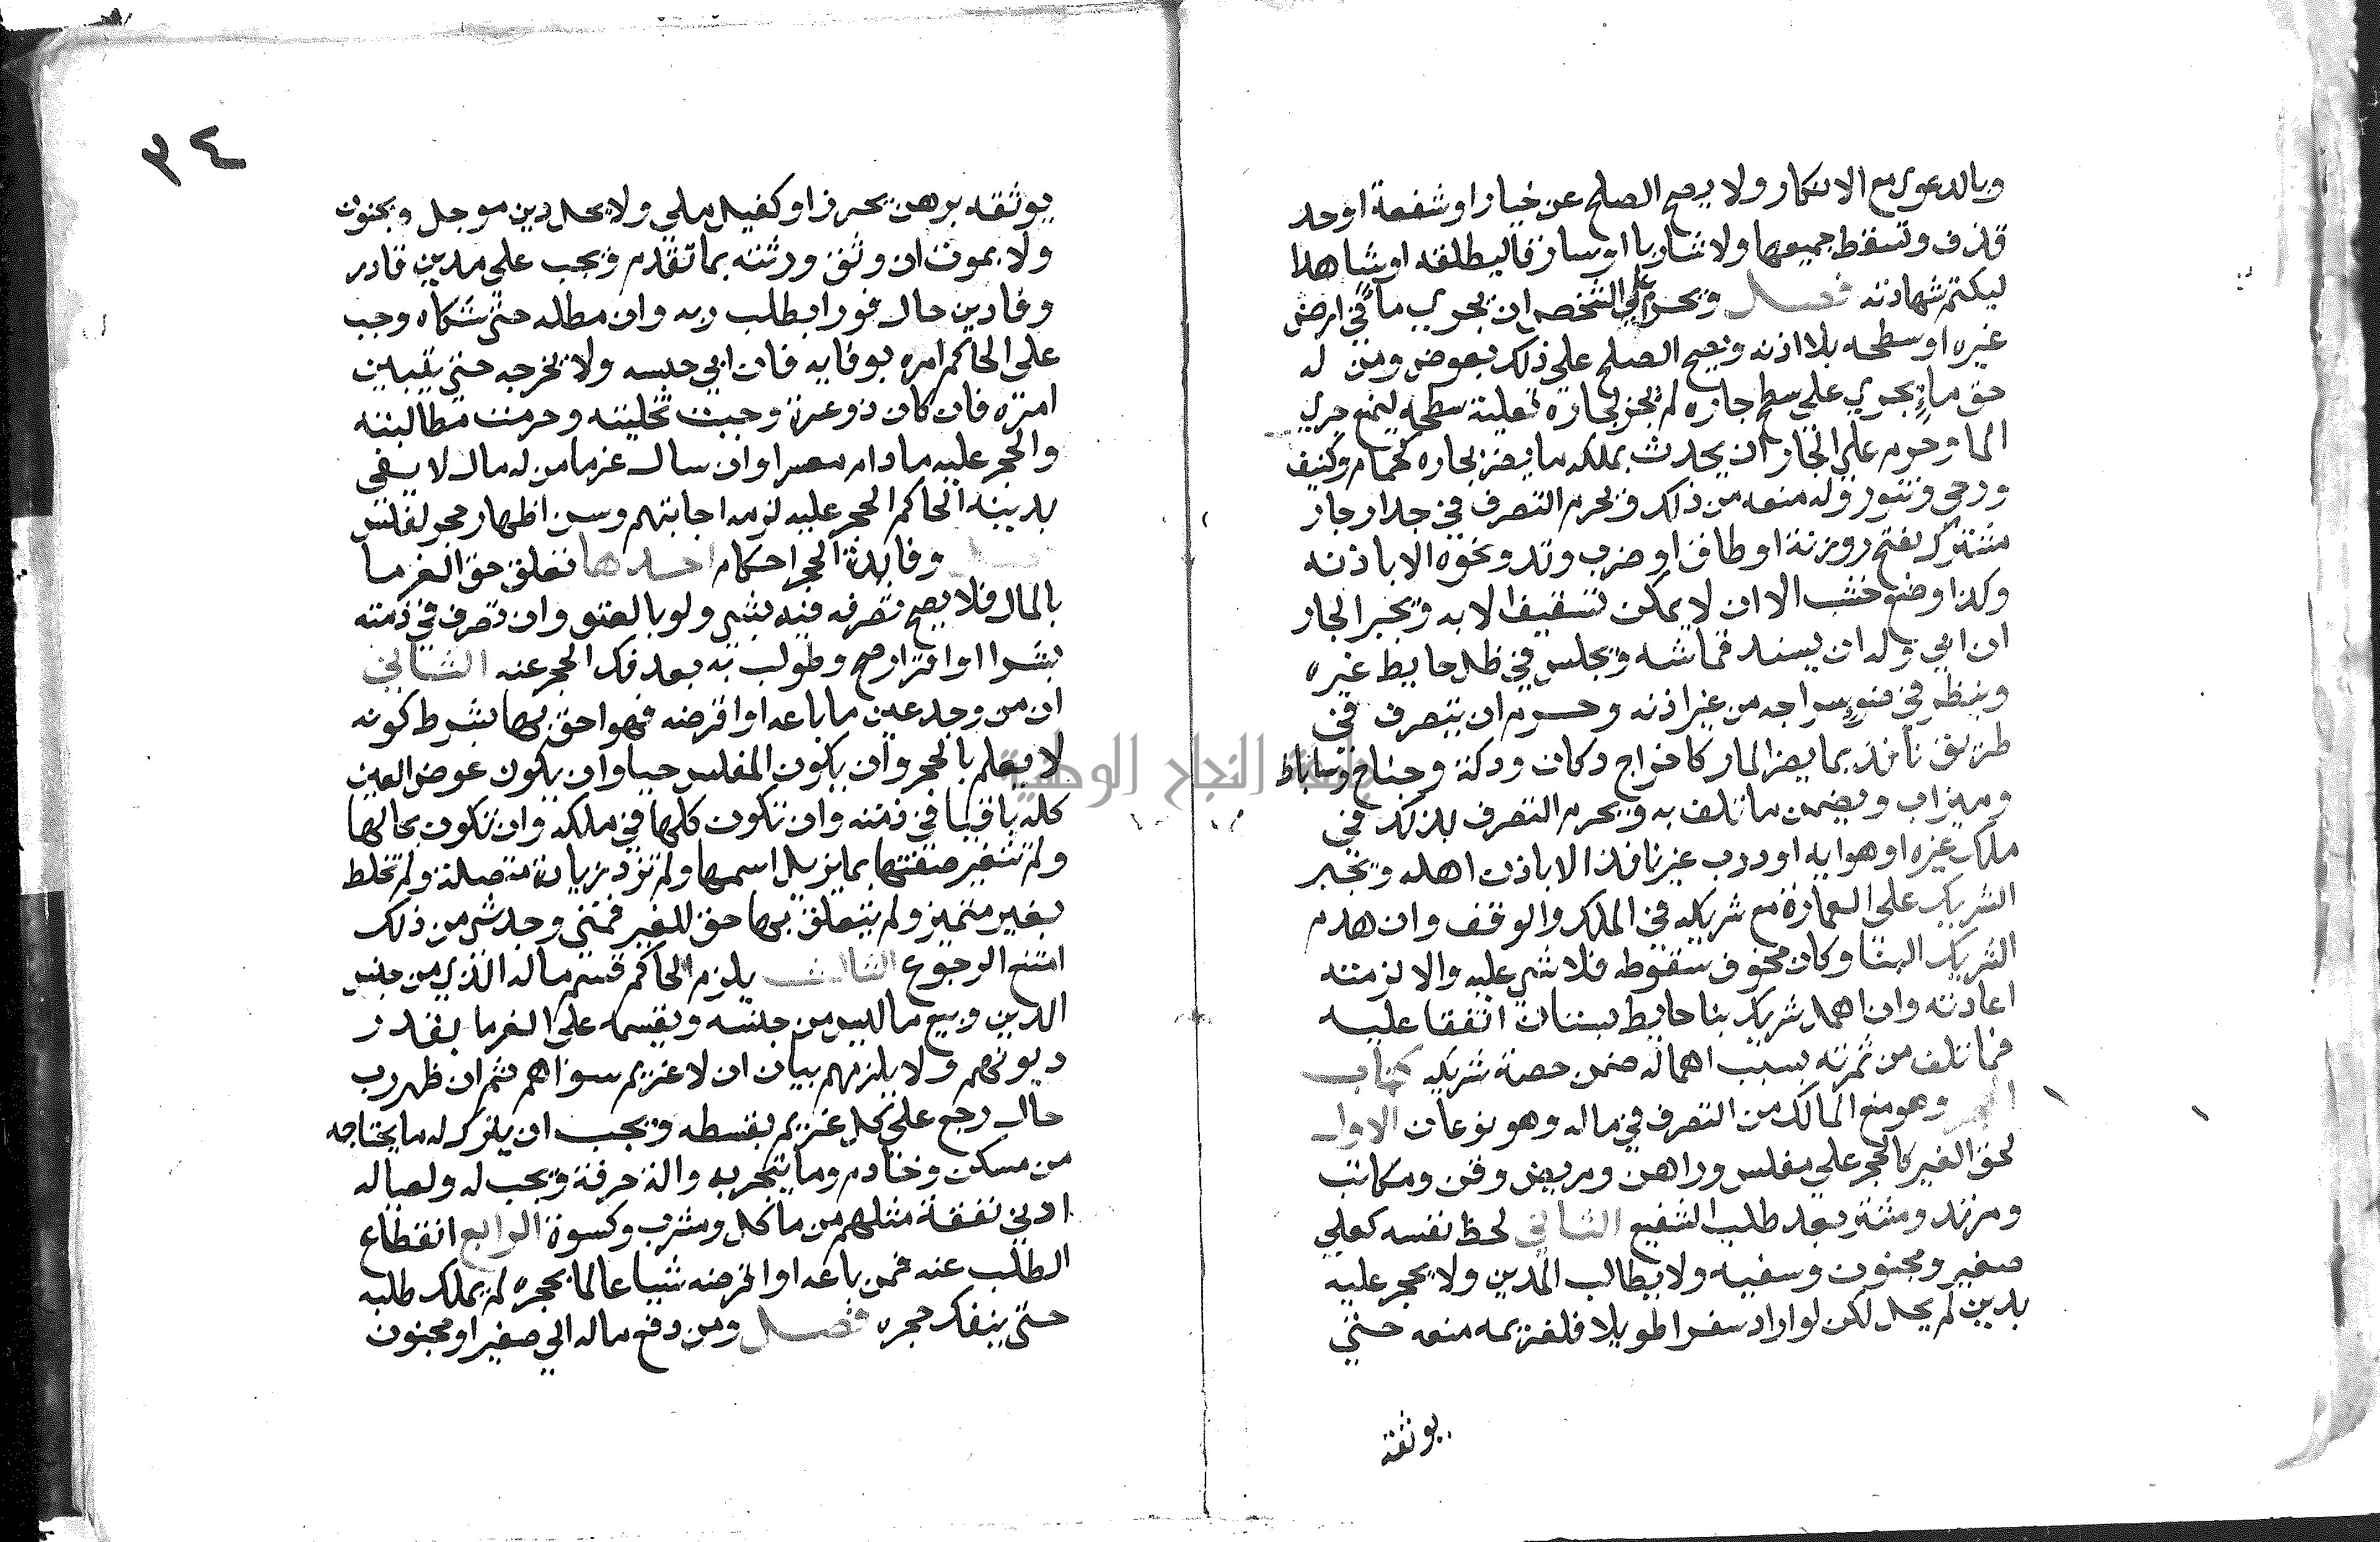 وبالدعوي مع الانكار ولا يصح الصلح عن خيار او شفعة او حد
قذف وتسقط جميعها ولا شاربا او سارقا ليطلقه او شاهدا
ليكتم شهادته فصل ويحرم علي الشخص ان يجري ماء في ارض
غيره او سطحه بلا اذنه ويصح الصلح علي ذلك بعوض ومن له
حق ماء يجري علي سطح جاره لم يجز لجاره تعلية سطحه ليمنع جري
الما وحرم علي الجار ان يحدث بملكه ما يضر بجاره كحمام وكنيف
ورحي وتنور وله منعه من ذلك ويحرم التصرف في جدار جار
مشترك بفتح روزنة او طاق او ضرب وتد ونحوه الا باذنه
وكذا وضع خشب الا ان لا يمكن تسقيف الا به ويجبر الجار
ان ابي وله ان يسند قماشه ويجلس في ظل حايط غيره
وينظر في ضوء سراجه من غير اذنه وحرم ان يتصرف في
طريق نافذ بما يضر المار كاخراج دكان ودكة وجناح وساباط
وميزاب ويضمن ما تلف به ويحرم التصرف بذلك في
ملك غيره او هوايه او درب غير نافذ الا باذن اهله ويجبر
الشريك علي العمارة مع شريكه في الملك والوقف وان هدم
الشريك البنا وكان مخوف سقوطه فلا شي عليه والا لزمته
اعادته وان اهمل شريك بنا حايط بستان اتفقا عليه
فما تلف من ثمرته بسبب اهماله ضمن حصة شريكه كتاب
الحجر وهو منع المالك من التصرف في ماله وهو نوعان الاول
لحق الغير كالحجر علي مفلس وراهن ومريض وقن ومكاتب
ومرتد ومشتر بعد طلب الشفيع الثاني لحظ نفسه كعلي
صغير ومجنون وسفيه ولا يطالب المدين ولا يحجر عليه
بدين لم يحل لكن لو اراد سفرا طويلا فلغريمه منعه حتي
يوثقه
٣٤
يوثقه برهن يحرز او كفيل ملي ولا يحل دين موجل بجنون
ولا بموت ان وثق ورثته بما تقدم ويجب علي مدين قادر
وفا دين حال فورا بطلب ربه وان مطله حتي شكاه وجب
علي الحاكم امره بوفايه فان ابي حبسه ولا يخرجه حتي يتبين
امره فان كان ذو عسرة وجبت تخليته وحرمت مطالبته
والحجر عليه ما دام معسرا وان سال غرما من له مال لا يفي
بدينه الحاكم الحجر عليه لزمه اجابتهم وسن اظهار حجر لفلس
فصل وفايدة الحجر احكام احدها تعلق حق الغرما
بالمال فلا يصح تصرفه فيه بشي ولو بالعتق وان تصرف في ذمته
بشرا او اقرار صح وطولب به بعد فك الحجر عنه الثاني
ان من وجد عين ما باعه او اقرضه فهو احق بها بشرط كونه
لا يعلم بالحجر وان يكون المفلس حيا وان يكون عوض العين
كله باقيا في ذمته وان تكون كلها في ملكه وان تكون بحالها
ولم تتغير صفتها بما يزيل اسمها ولم تزد زيادة متصلة ولم تخلط
بغير متميز ولم يتعلق بها حق للغير فمتي وجد شي من ذلك
امتنع الرجوع الثالث يلزم الحاكم قسم ماله الذي من جنس
الدين وبيع ما ليس من جنسه ويقسمه علي الغرما بقدر
ديونهم ولا يلزمهم بيان ان لا غريم سواهم ثم ان ظهر رب
حال رجع علي كل غريم بقسطه ويجب ان يترك له ما يحتاجه
من مسكن وخادم وما يتجر به والة حرفة ويجب له ولعياله
ادني نفقة مثلهم من ماكل ومشرب وكسوة الرابع انقطاع
الطلب عنه فمن باعه او اقرضه شيا عالما بحجره لم يملك طلبه
حتي ينفك حجره فصل ومن دفع ماله الي صغير او مجنون
جامعة النجاح الوطنية